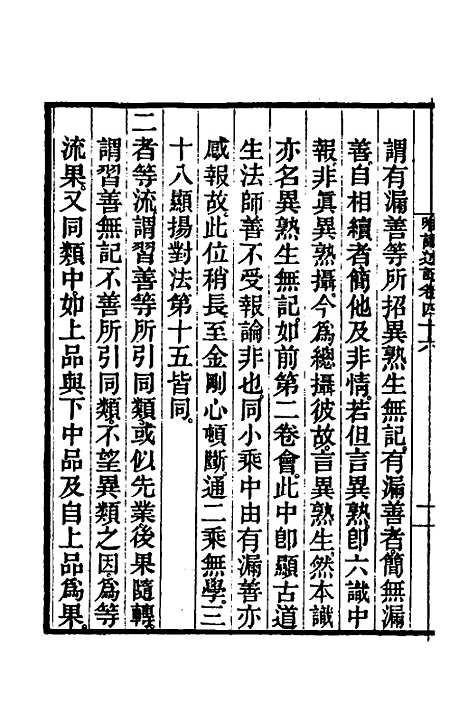 謂有漏善等所招異熟生無記。有漏善者簡無漏
善。自相續者簡他及非情。若但言異熟。卽六識中
報。非眞異熟攝。今爲總攝彼故。言異熟生。然本識
亦名異熟生無記。如前第二卷會。此中卽顯古道
生法師善不受報論非也。同小乘中由有漏善亦
感報故。此位稍長。至金剛心頓斷。通二乘無學。三
十八顯揚對法第十五皆同。
二者等流。謂習善等所引同類。或似先業後果隨轉。
謂習善無記不善所引同類。不望異類之因。爲等
流果。又同類中如上品與下中品及自上品爲果。
卷四十六